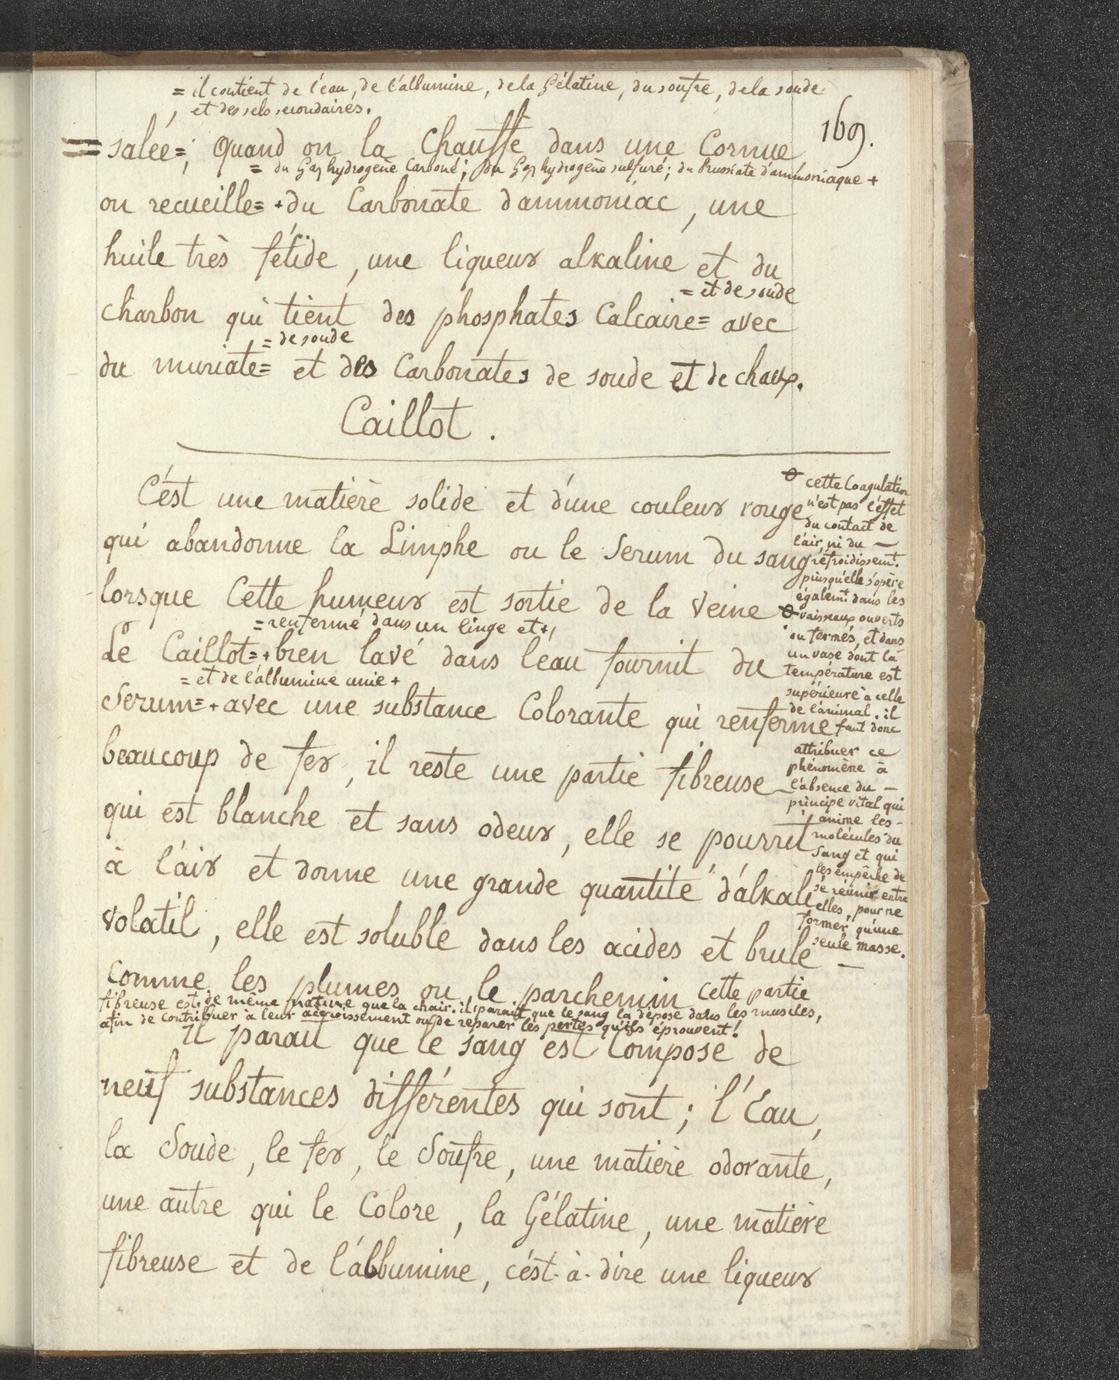 = il contient de l'eau, de l'allumine, de la Gélatine, du soufre, de la soude
et des sels secondaires.
169.
= salée =; Quand on la Chauffe dans une Cornue
= du Gaz hydrogène Carboné; du Gaz hydrogène sulfuré; du Prussiate d'ammoniaque +
on recueille= +du Carbonate d'ammoniac, une
huile très fétide, une liqueur alkaline et du
= et de soude
charbon qui tient des phosphates Calcaire= avec
= de soude
du muriate= et des Carbonates de soude et de chaux.
Caillot.
C'est une matière solide et d'une couleur rouge
qui abandonne la Limphe ou le Serum du sang
lorsque Cette humeur est sortie de la Veine ⊖
= renfermé dans un linge et +
Le Caillot=+bien lavé dans l'eau fournit du
= et de l'albumine unie +
Serum=+avec une substance Colorante qui renferme
beaucoup de fer, il reste une partie fibreuse
qui est blanche et sans odeur, elle se pourrit
à l'air et donne une grande quantité d'alkali
volatil, elle est soluble dans les acides et brule
Comme les plumes ou le parchemin Cette partie
fibreuse est de même nature que la chair. il parait que le sang la dépose dans les muscles,
afin de contribuer à leur accroissement ou de réparer les pertes qu'ils éprouvent!
Il parait que le sang est Composé de
neuf substances différentes qui sont; l'Eau,
la Soude, le fer, le Soufre, une matière odorante,
une autre qui le Colore, la Gélatine, une matière
fibreuse et de l'albumine, c'est-à-dire une liqueur
⊖ cette Coagulation
n'est pas l'effet
du contact de
l'air, ni du —
refroidissemt.
puisqu'elle s'opère
égalemt dans les
vaisseaux ouverts
ou fermés, et dans
un vase dont la
température est
supérieure à celle
de l'animal. il
faut donc
attribuer ce
phénomène à
l'absence du —
principe vital qui
anime les -
molécules du
Sang et qui
les empêche de
se réunir entre
elles, pour ne
former qu'une
seule masse.